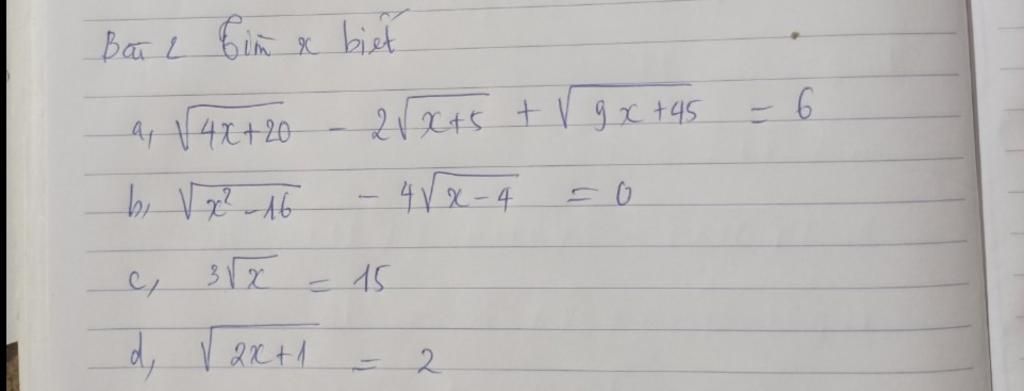 Bài 2 Tìm x biết
a, √4x+20 - 2√x+5 + √9x+45 = 6
b, √x²-16 - 4√x-4 = 0
c, 3√x = 15
d, √2x+1 = 2